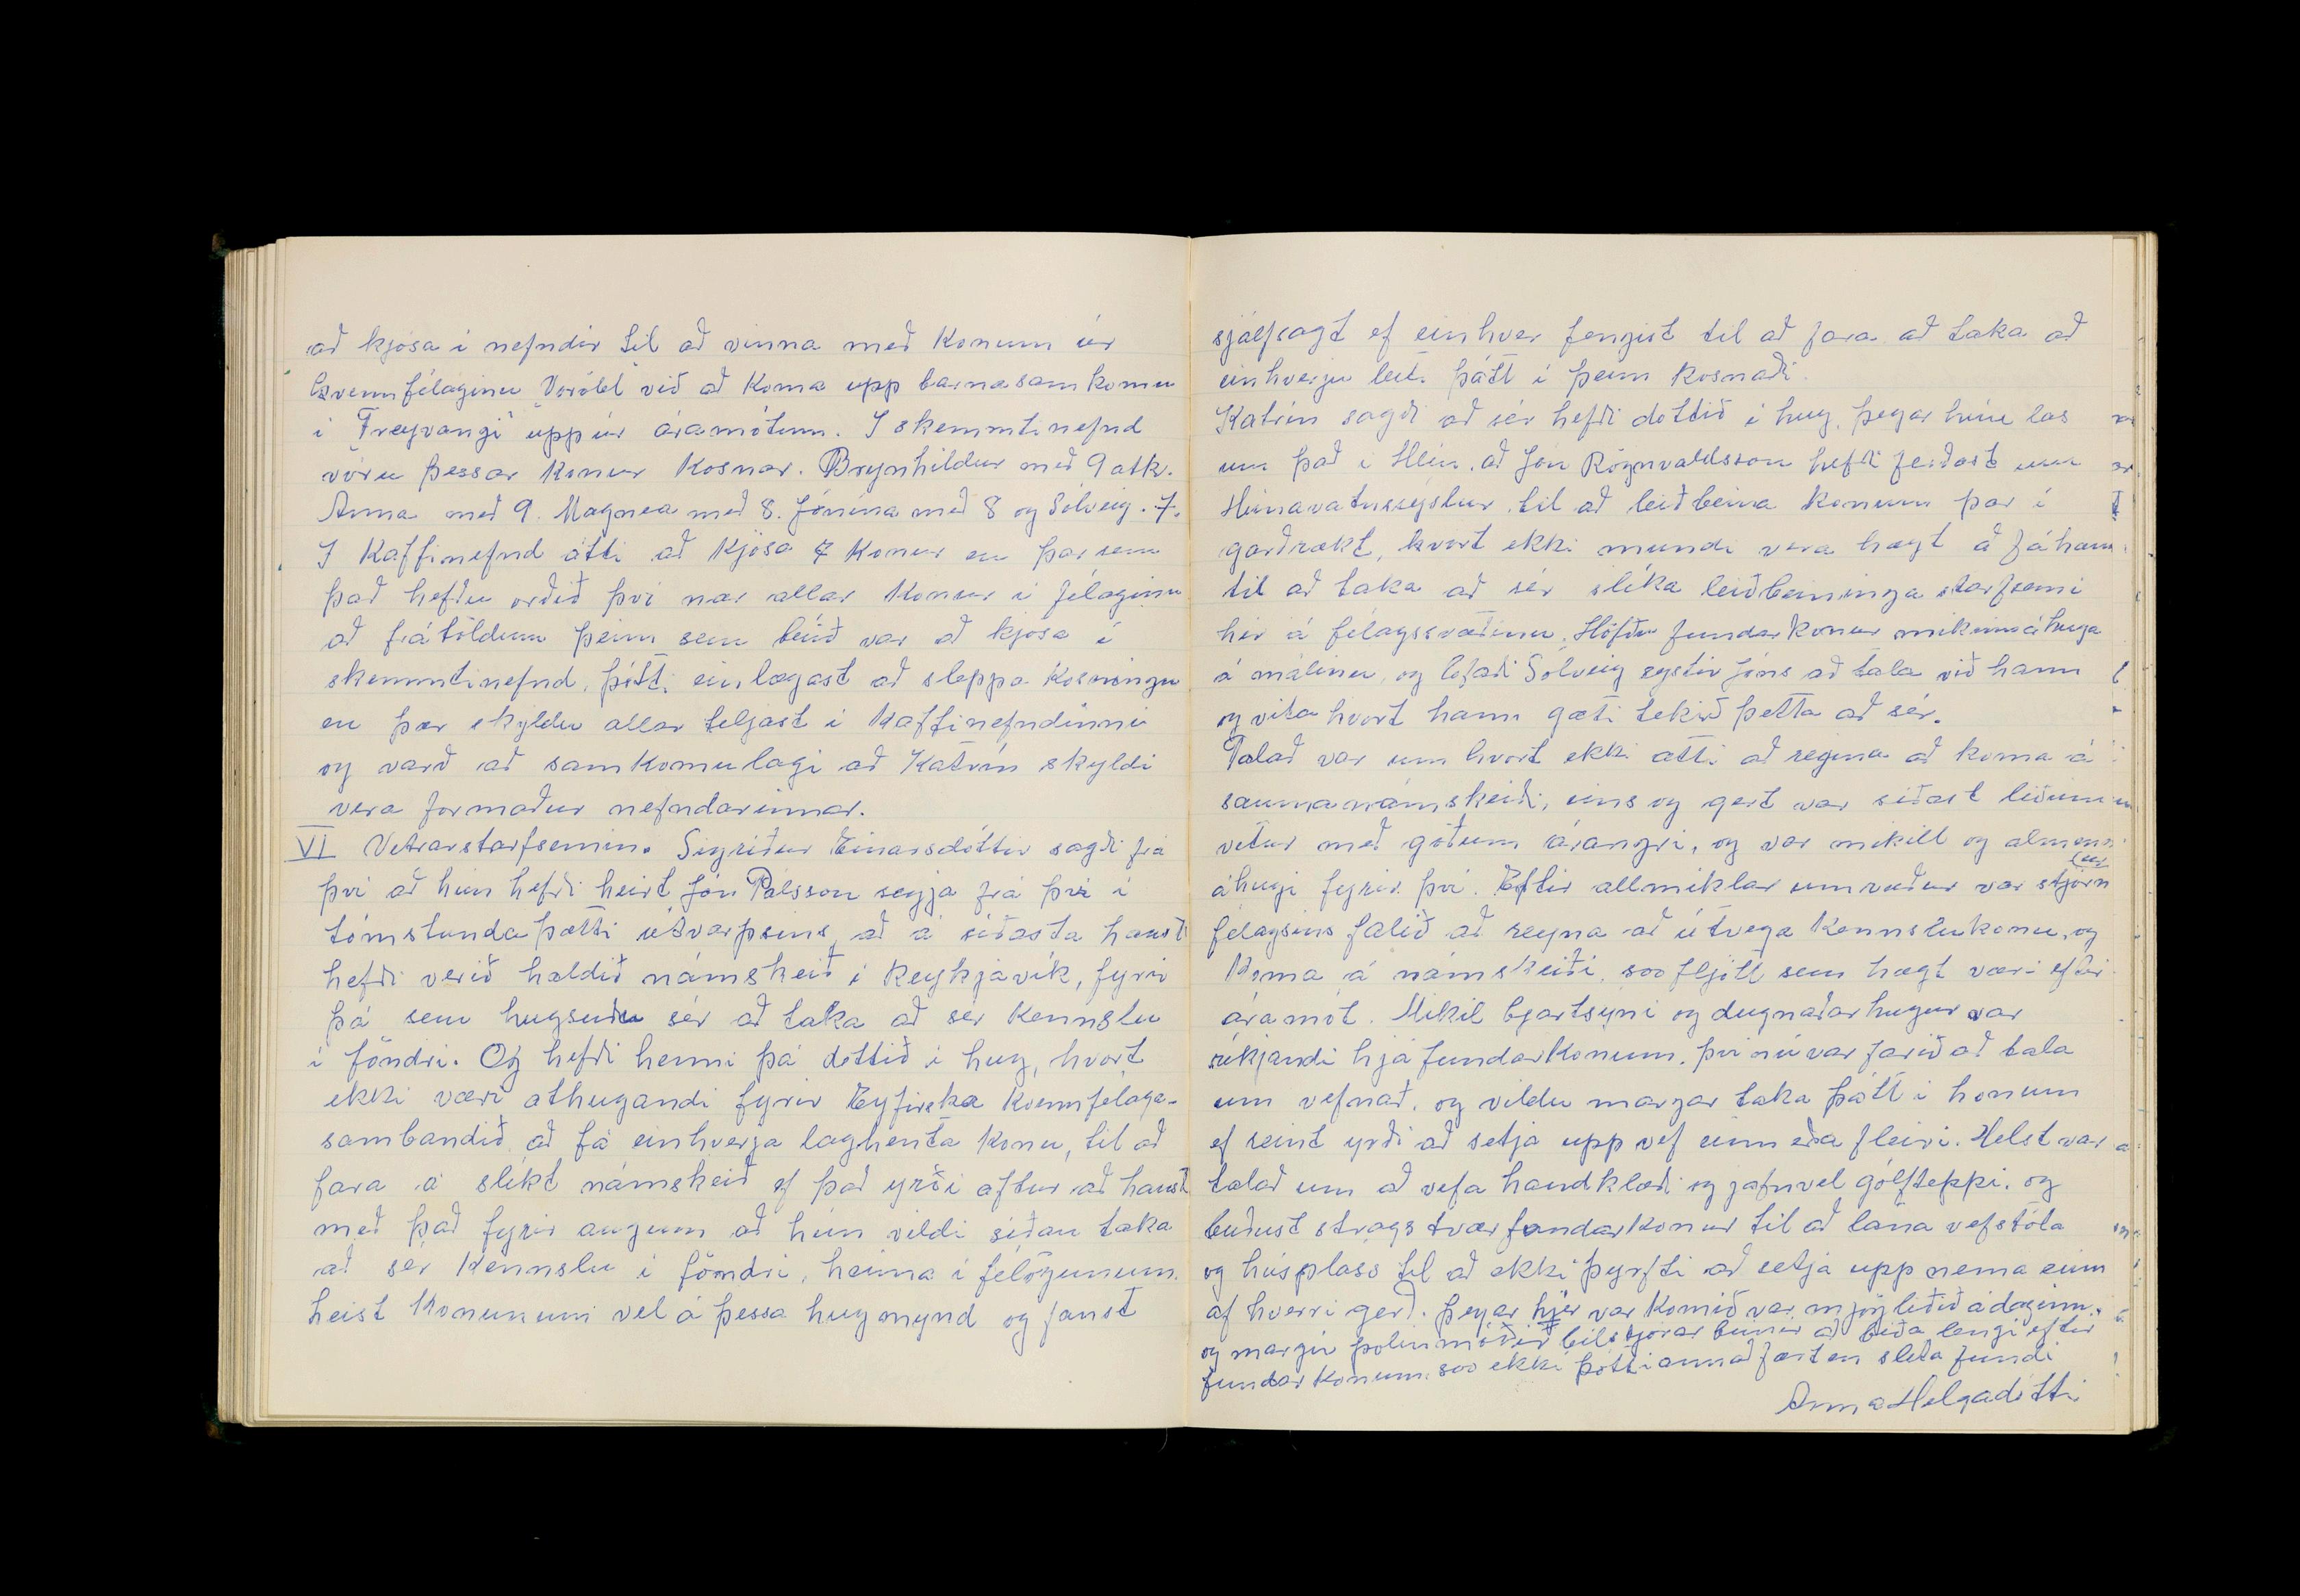 að kjósa í nefndir til að vinna með konum úr
kvennfélaginu „Voröld" við að koma upp barnasamkomu
í „Freyvangi" uppúr áramótum. I skemmtinefnd
vóru þessar konur kosnar. Brynhildur með 9 atk.
Anna með 9. Magnea með 8. Jónína með 8 og Sólveig. 7.
I kaffinefnd átti að kjósa 7 konur en þar sem
það hefðu orðið því nær allar konur í félaginu
að frátöldum þeim sem búið var að kjósa í
skemmtinefnd, þótti einlægast að sleppa kosningu
en þær skyldu allar teljast í kaffinefndinni
og varð að samkomulagi að Katrín skyldi
vera formaður nefndarinnar.
VI Vetrarstarfsemin. Sigríður Einarsdóttir sagði frá
því að hún hefði heirt Jón Pálsson segja frá því í
tómstundaþætti útvarpsins, að á síðasta hausti
hefði verið haldið námskeið í Reykjavík, fyrir
þá sem hugsuðu sér að taka að sér kennslu
í föndri. Og hefði henni þá dottið í hug, hvort
ekki væri athugandi fyrir Eyfirska kvennfélaga-
sambandið að fá einhverja laghenta konu, til að
fara á slíkt námskeið ef það yrði aftur að hausti
með það fyrir augum að hún vildi síðan taka
að sér kennslu í föndri, heima í félögunum.
heist konunum vel á þessa hugmynd og fanst
sjálfsagt ef einhver fengist til að fara að taka að
einhverju leiti þátt í þeim kosnaði.
Katrín sagði að sér hefði dottið í hug, þegar hún las
um það í Hlín, að Jón Rögnvaldsson hefði ferðast um
Húnavatnssýslur til að leiðbeina konum þar í
garðrækt, hvort ekki mundi vera hægt á fá hann
til að taka að sér slíka leiðbeininga starfsemi
hér á félagssvæðinu. Höfðu fundarkonur mikinn áhuga
á málinu, og lofaði Sólveig systir Jóns að tala við hann
og vita hvort hann gæti tekið þetta að sér.
Talað var um hvort ekki ætti að reyna að koma á
saumanámskeiði, eins og gert var síðast liðinn
vetur með góðum árangri, og var mikill og almennur
áhugi fyrir því. Eftir allmiklar umræður var stjórn
félagsins falið að reyna að útvega kennslukonu, og
koma á námskeiði, svo fljótt sem hægt væri eftir
áramót. Mikil bjartsýni og dugnaðarhugur var
ríkjandi hjá fundarkonum, því nú var farið að tala
um vefnað, og vildu margar taka þátt í honum
ef reint yrði að setja upp vef einn eða fleiri. Helst var
talað um að vefa handklæði og jafnvel gólfteppi, og
buðust strags tvær fundarkonur til að lána vefstóla
og húspláss til að ekki þyrfti að setja upp nema einn
af hverri gerð. Þegar hjér var komið var mjög liðið á daginn.
og margir þolinmóðir bílstjórar búnir að bíða lengi eftir
fundarkonum. svo ekki þótti annað fært en slíta fundi
Anna Helgadóttir